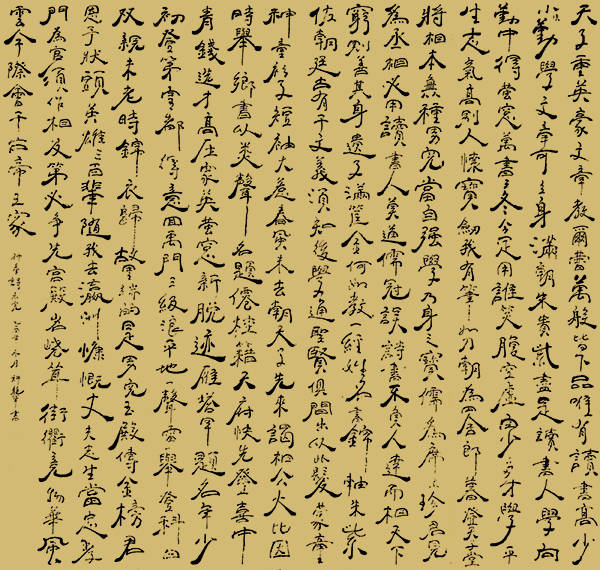 天子重英豪文章教爾曹萬般皆下品唯有讀書高少
小勤學文章可立身滿朝朱貴紫盡是讀書人學向
勤中得螢窗萬書三冬今足用誰笑腹空虛自少多才學平
生志氣高別人懷寶劍我有筆如刀朝為田舍郎暮登天子堂
將相本無種男兒當自強學乃身之寶儒為席上珍君見
為丞相必用讀書人莫道儒冠誤詩書不負人達而相天下
窮則善其身遺子滿籯金何如教一經姓名書錦軸朱紫
佐朝廷古有千文義須知後學通聖賢俱間出以此發蒙童
神童衫子短袖大惹春風未去朝天子先來謁相公大比因
時舉鄉書以類聲名題仙桂籍天府快先登喜中
青錢選才高壓眾英螢窗新脫跡雁塔早題名年少
初登第皇都得意回禹門三級浪平地一聲雷舉登科日
双親未老時錦衣歸故里端的是男兒玉殿傳金榜君
恩予狀頭英雄三百輩隨我去瀛洲慷慨丈夫志生當忠孝
門為官須作相及第必爭先宮殿岧嶢聳街衢竟物華風
雲今際會千古帝王家